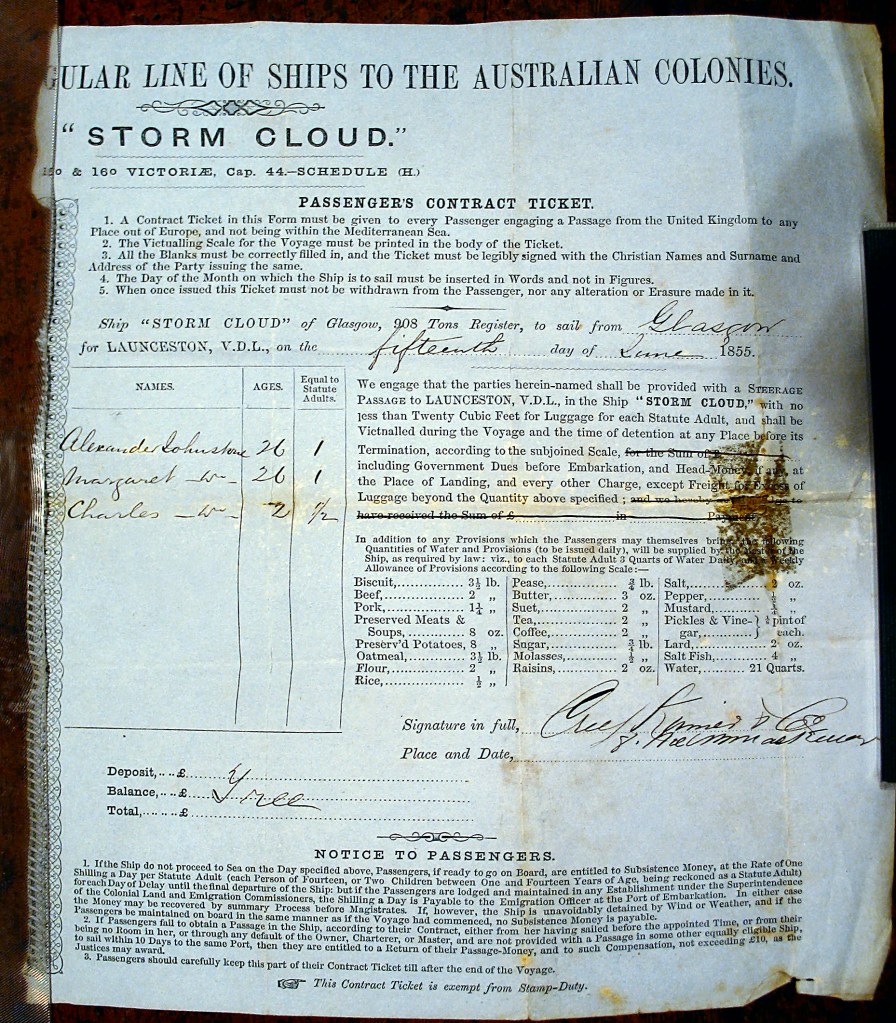 ULAR LINE OF SHIPS TO THE AUSTRALIAN COLONIES.
"STORM CLOUD."
& 16o VICTORIÆ, Cap. 44.—SCHEDULE (H.)
PASSENGER'S CONTRACT TICKET.
1. A Contract Ticket in this Form must be given to every Passenger engaging a Passage from the United Kingdom to any
Place out of Europe, and not being within the Mediterranean Sea.
2. The Victualling Scale for the Voyage must be printed in the body of the Ticket.
3. All the Blanks must be correctly filled in, and the Ticket must be legibly signed with the Christian Names and Surname and
Address of the Party issuing the same.
4. The Day of the Month on which the Ship is to sail must be inserted in Words and not in Figures.
5. When once issued this Ticket must not be withdrawn from the Passenger, nor any alteration or Erasure made in it.
Ship "STORM CLOUD" of Glasgow, 908 Tons Register, to sail from Glasgow
for LAUNCESTON, V.D.L., on the fifteenth day of June 1855.
NAMES. AGES. Equal to Statute Adults.
Alexander Johnstone 26 1
Margaret —Do— 26 1
Charles —Do— 2 1/2
We engage that the parties herein-named shall be provided with a STEERAGE
PASSAGE to LAUNCESTON, V.D.L., in the Ship "STORM CLOUD," with no
less than Twenty Cubic Feet for Luggage for each Statute Adult, and shall be
Victualled during the Voyage and the time of detention at any Place before its
Termination, according to the subjoined Scale, for the Sum of £
including Government Dues before Embarkation, and Head-Money, if any, at
the Place of Landing, and every other Charge, except Freight for Excess of
Luggage beyond the Quantity above specified; and we hereby to
have received the Sum of £ in Payment
In addition to any Provisions which the Passengers may themselves bring, the following
Quantities of Water and Provisions (to be issued daily), will be supplied by the Master of the
Ship, as required by law: viz., to each Statute Adult 3 Quarts of Water Daily, and a Weekly
Allowance of Provisions according to the following Scale:—
Biscuit, 3½ lb.
Beef, 2 „
Pork, 1¼ „
Preserved Meats &
Soups, 8 oz.
Preserv'd Potatoes, 8 „
Oatmeal, 3½ lb.
Flour, 2 „
Rice, ½ „
Pease, ¾ lb.
Butter, 3 oz.
Suet, 2 „
Tea, 2 „
Coffee, 2 „
Sugar, ¾ lb.
Molasses, ½ „
Raisins, 2 oz.
Salt, 2 oz.
Pepper, ½ „
Mustard, „
Pickles & Vine- } ¼ pint of
gar, } each.
Lard, 2 oz.
Salt Fish, 4 „
Water, 21 Quarts.
Signature in full,
Place and Date,
Deposit, £
Balance, £ Free
Total, £
NOTICE TO PASSENGERS.
1. If the Ship do not proceed to Sea on the Day specified above, Passengers, if ready to go on Board, are entitled to Subsistence Money, at the Rate of One
Shilling a Day per Statute Adult (each Person of Fourteen, or Two Children between One and Fourteen Years of Age, being reckoned as a Statute Adult)
for each Day of Delay until the final departure of the Ship: but if the Passengers are lodged and maintained in any Establishment under the Superintendence
of the Colonial Land and Emigration Commissioners, the Shilling a Day is Payable to the Emigration Officer at the Port of Embarkation. In either case
the Money may be recovered by summary Process before Magistrates. If, however, the Ship is unavoidably detained by Wind or Weather, and if the
Passengers be maintained on board in the same manner as if the Voyage had commenced, no Subsistence Money is payable.
2. If Passengers fail to obtain a Passage in the Ship, according to their Contract, either from her having sailed before the appointed Time, or from their
being no Room in her, or through any default of the Owner, Charterer, or Master, and are not provided with a Passage in some other equally eligible Ship,
to sail within 10 Days to the same Port, then they are entitled to a Return of their Passage-Money, and to such Compensation, not exceeding £10, as the
Justices may award.
3. Passengers should carefully keep this part of their Contract Ticket till after the end of the Voyage.
☞ This Contract Ticket is exempt from Stamp-Duty.